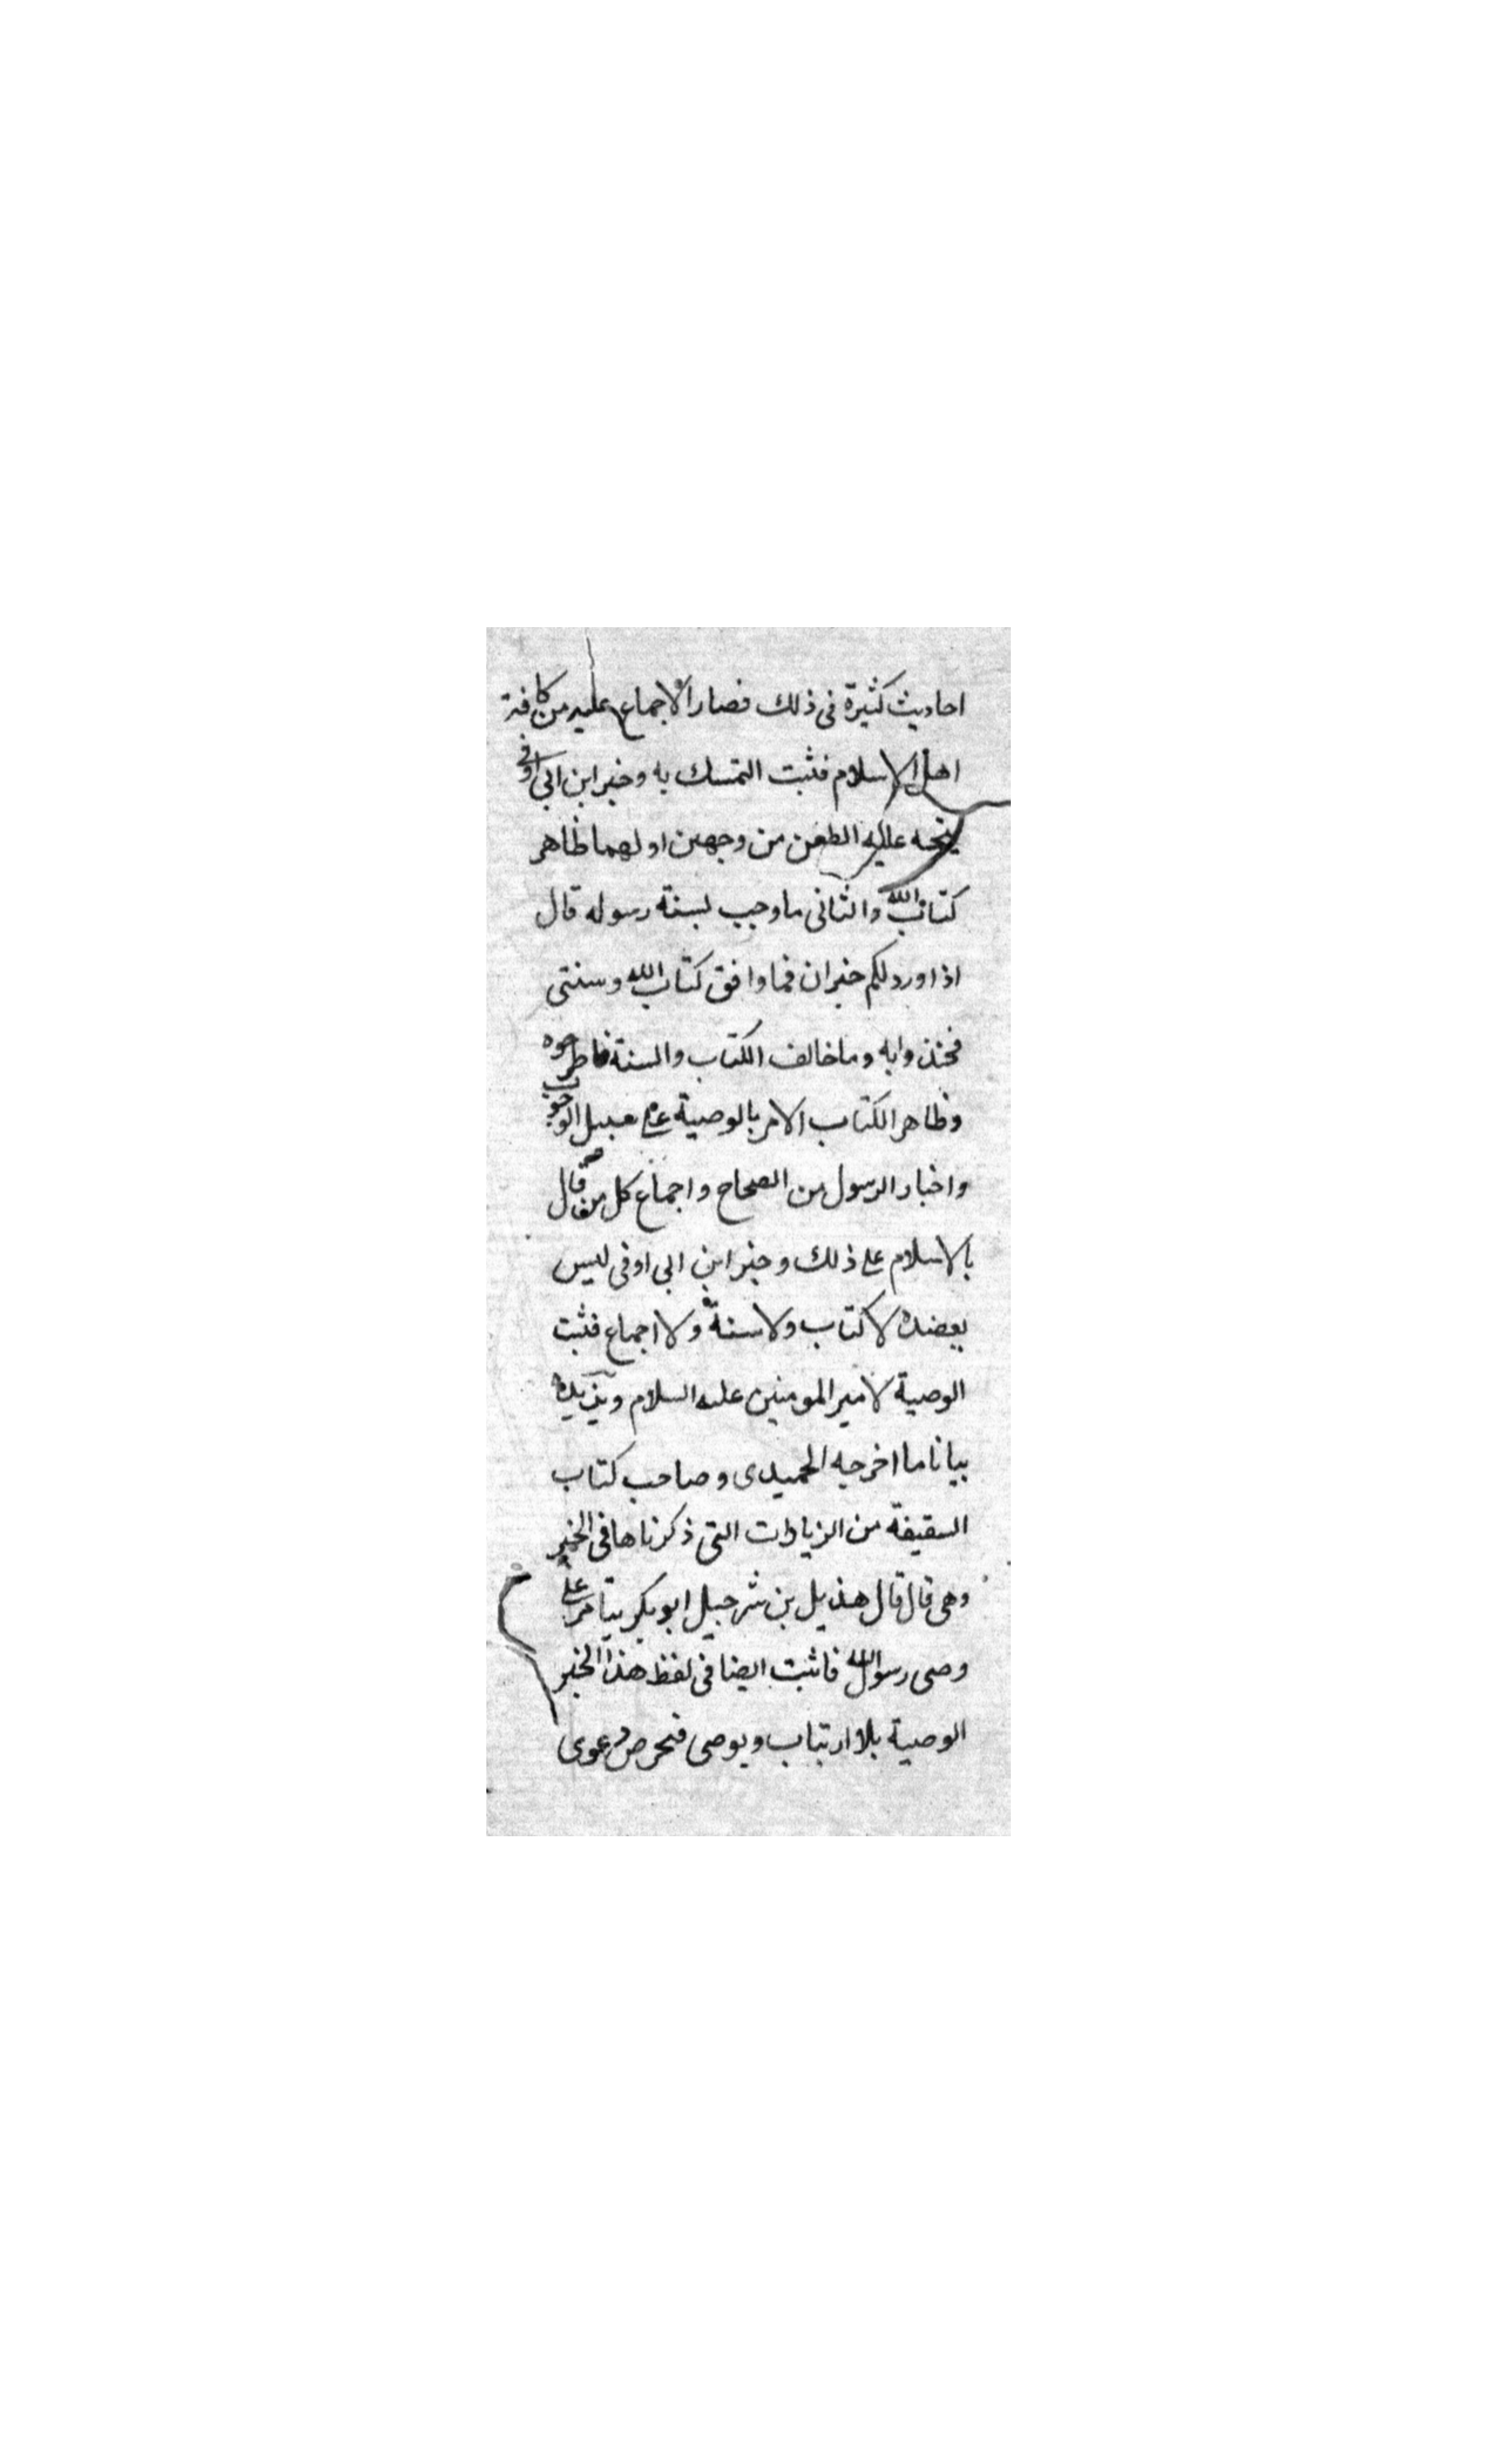 احاديث كثيرة فى ذلك فصار الاجماع عليه من كافة
اهل الاسلام فثبت التمسك به وخبر ابن ابي اوفى
يتجه عليه الطعن من وجهين اولهما ظاهر
كتاب الله والثانى ما وجب لسنة رسوله قال
اذا ورد لكم خبران فما وافق كتاب الله وسنتى
فخذوا به وما خالف الكتاب والسنة فاطرحوه
وظاهر الكتاب الامر بالوصية على سبيل الوجوب
واخبار الرسول من الصحاح واجماع كل من قال
بالاسلام على ذلك وخبر ابن ابى اوفى ليس
يعضده لا كتاب ولا سنة ولا اجماع فثبت
الوصية لامير المومنين عليه السلام ويزيده
بيانا ما اخرجه الحميدى وصاحب كتاب
السقيفة من الزيادات التى ذكرناها فى الخبر
وهى قال قال هذيل بن شرحبيل ابو بكر يتامر على
وصى رسول الله فاثبت ايضا فى لفظ هذا الخبر
الوصية بلا ارتياب ويوصى دعوى